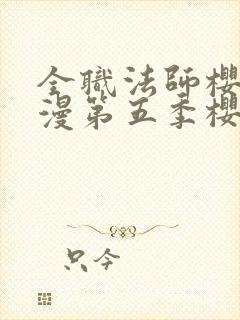 全職法師櫻
漫第五季櫻
只今